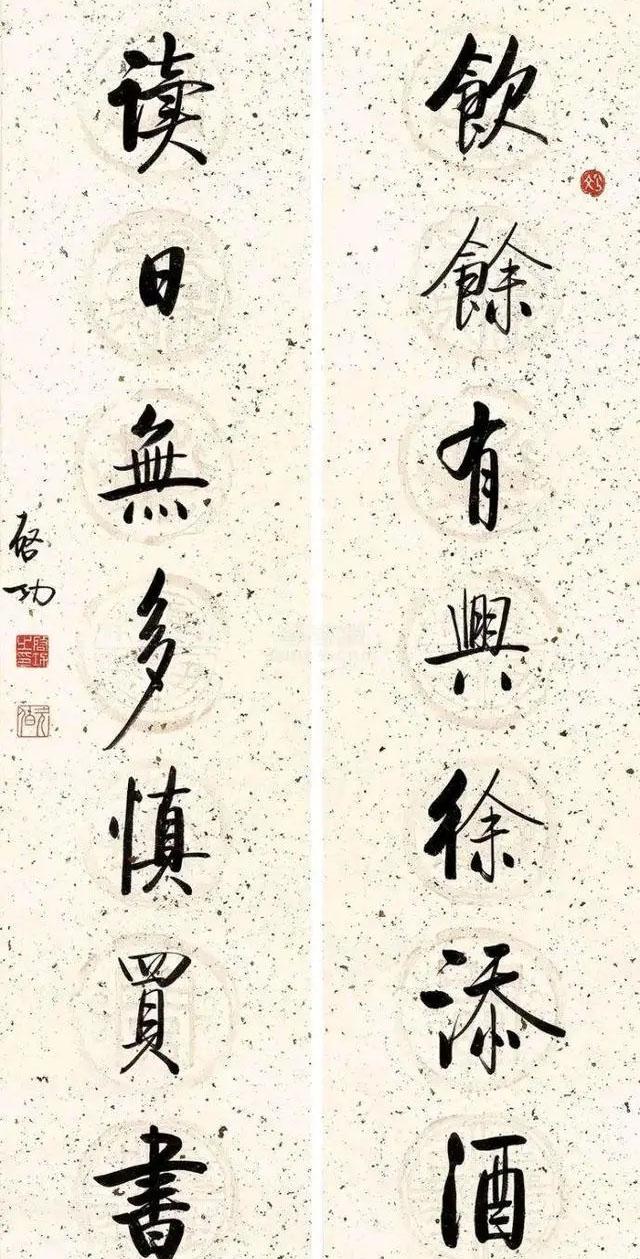 飲餘有興徐添酒
读日無多慎買書
启功